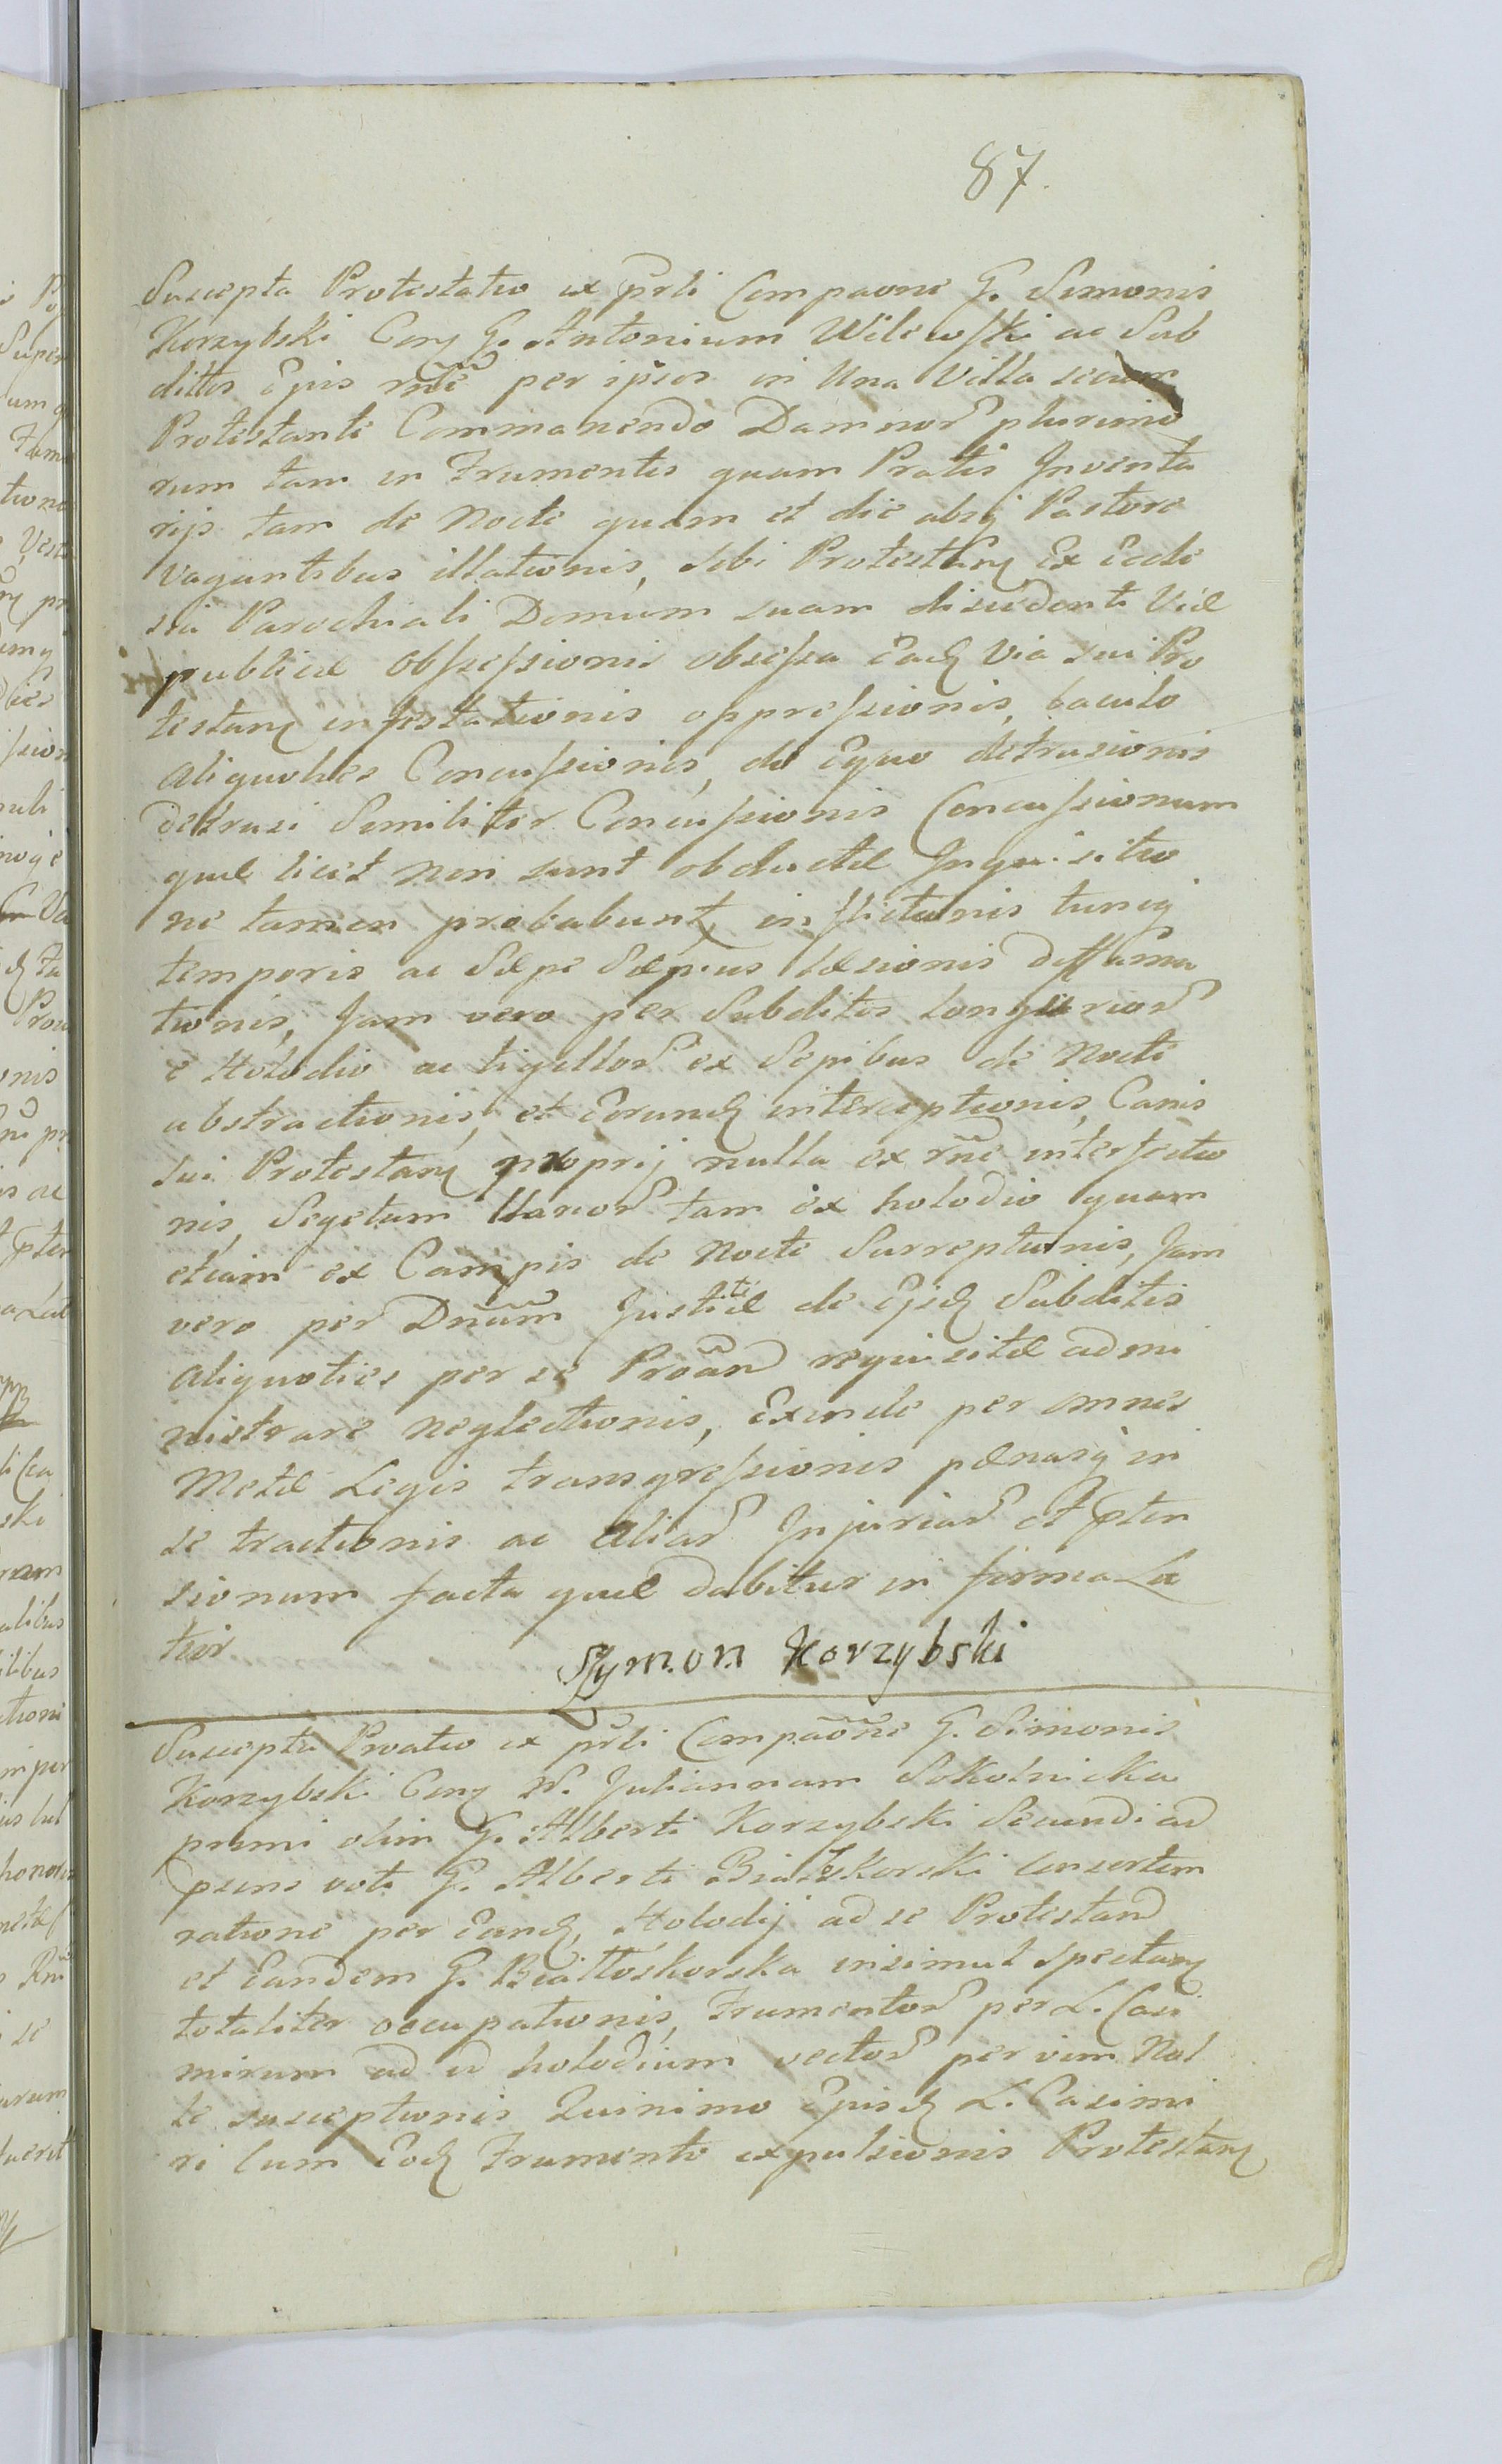 87.
Suscepta Protestatio ex prli Compaone G. Simonis
Korzybski Con̄ G. Antonium Wilewski ac Sub
ditos Ejus rñe per ipsos in Una Villa secum
Protestante Commanendo Damnor plurimo
rum tam in Frumentis quam Pratis Inventa
rijs tam de Nocte quam et die absq Pastore
vagantibus illationis, Sibi Protestan̄ Ex Eccle
sia Parochiali Domum suam discedenti Viæ
publicæ obsessionis obsessa Eadem Via sui Pro
testan̄ infestationis oppressionis, baculo
aliquoties Concussionis, de Equo detrusionis
detrusi Similiter Concussionis Concussionum
quæ licet non sunt obductæ Inquisitio
ne tamen probabunt, inflictionis tuniq
temporis ac Sæpe Sæpius læsionis diffama
tionis, Jam vero per Subditos longurior
e Holodio ac tigillor ex Sepibus de Nocte
abstractionis, et Eorund interceptionis, Canis
sui Protestan̄ proprij nulla ex rñe interfectio
nis, Segetum llarior tam ex holodio quam
etiam ex Campis de Nocte Surreptionis, Jam
vero per Dnum Justitiæ de Ejsd Subditis
aliquoties per se Proan̄d requisitæ admi
nistrare neglectionis, Exinde per omnes
Metæ Legis transgressionis pænasq in
se tractionis ac aliar Injuriar et pten
sionum facta quæ dabitur in forma La
tior
Szymon Korzybski
Suscepta Proatio ex prli Compaone G. Simonis
Korzybski Con̄ W. Juliannam Sokolnicka
primi olim G. Alberti Korzybski Secundi ad
psens voti G. Alberti Białoskorski Consortem
ratione per Eand, Holodij ad se Protestan̄d
et Eandem G. Białłoskorska insimul spectan̄
totaliter occupationis, Frumentor per L. Casi
mirum ad id holodium vector per vim Nol
le susceptionis Quinimo Episd L. Casimi
ri Cum Eod Frumento expulsionis Protestan̄